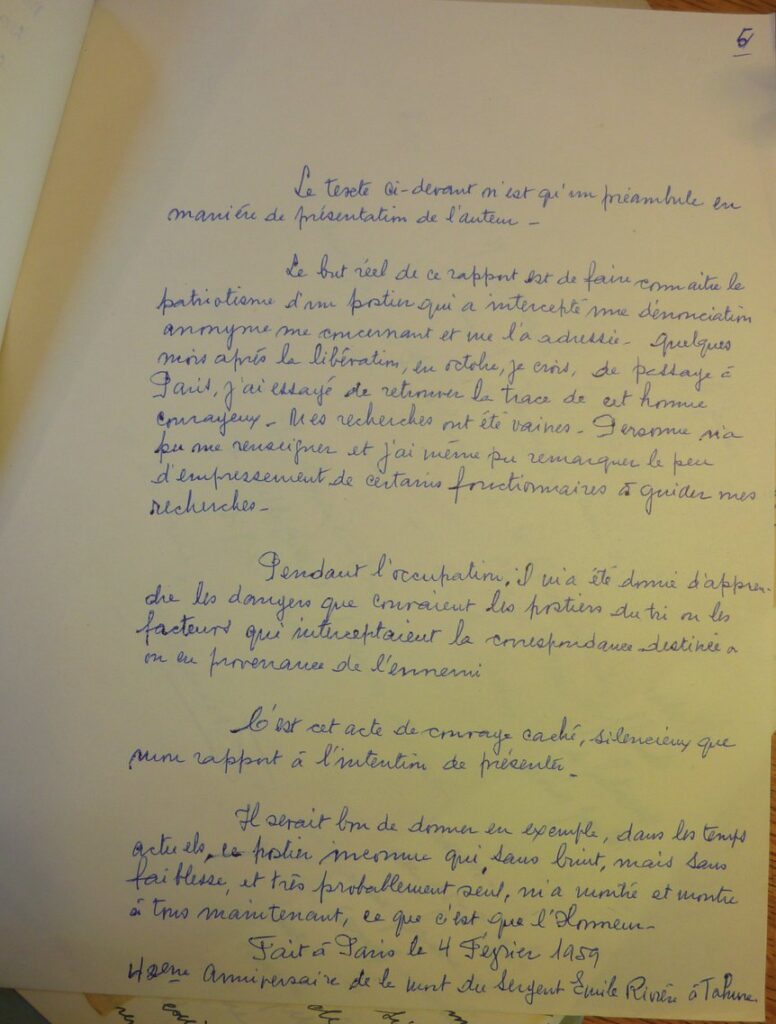 5
Le texte ci-devant n'est qu'un préambule en
manière de présentation de l'auteur -
Le but réel de ce rapport est de faire connaitre le
patriotisme d'un postier qui a intercepté une dénonciation
anonyme me concernant et me l'a adressée - Quelques
mois après la libération, en octobre, je crois, de passage à
Paris, j'ai essayé de retrouver la trace de cet homme
courageux - Mes recherches ont été vaines - Personne n'a
pu me renseigner et j'ai même pu remarquer le peu
d'empressement de certains fonctionnaires à guider mes
recherches -
Pendant l'occupation, il m'a été donné d'appren-
dre les dangers que couraient les postiers du tri ou les
facteurs qui interceptaient la correspondance destinée a
ou en provenance de l'ennemi
C'est cet acte de courage caché, silencieux que
mon rapport à l'intention de présenter -
Il serait bon de donner en exemple, dans les temps
actuels, ce postier inconnu qui, sans bruit, mais sans
faiblesse, et très probablement seul, m'a montré et montre
à tous maintenant, ce que c'est que l'Honneur -
Fait à Paris le 4 Février 1959
anniversaire de la mort du Sergent Emile Rivière à